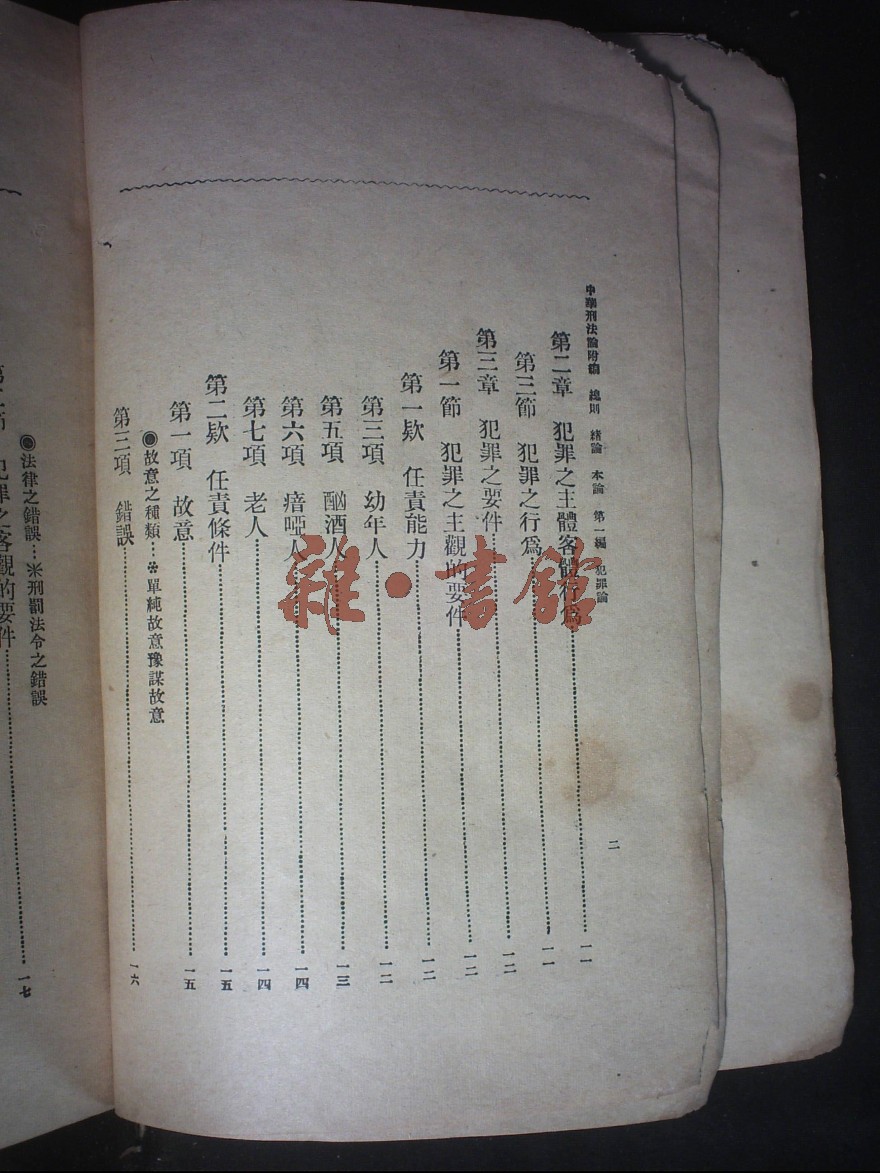 中華刑法論附編 總則 緒論 本論 第一編 犯罪論
二
第二章 犯罪之主體客體行爲……一一
第三節 犯罪之行爲……一一
第三章 犯罪之要件……一二
第一節 犯罪之主觀的要件……一二
第一欵 任責能力……一二
第三項 幼年人……一二
第五項 酗酒人……一三
第六項 瘖啞人……一四
第七項 老人……一四
第二欵 任責條件……一五
第一項 故意……一五
◉故意之種類…❉單純故意豫謀故意
第三項 錯誤……一六
◉法律之錯誤…※刑罰法令之錯誤
第二節 犯罪之客觀的要件……一七
雜·書館